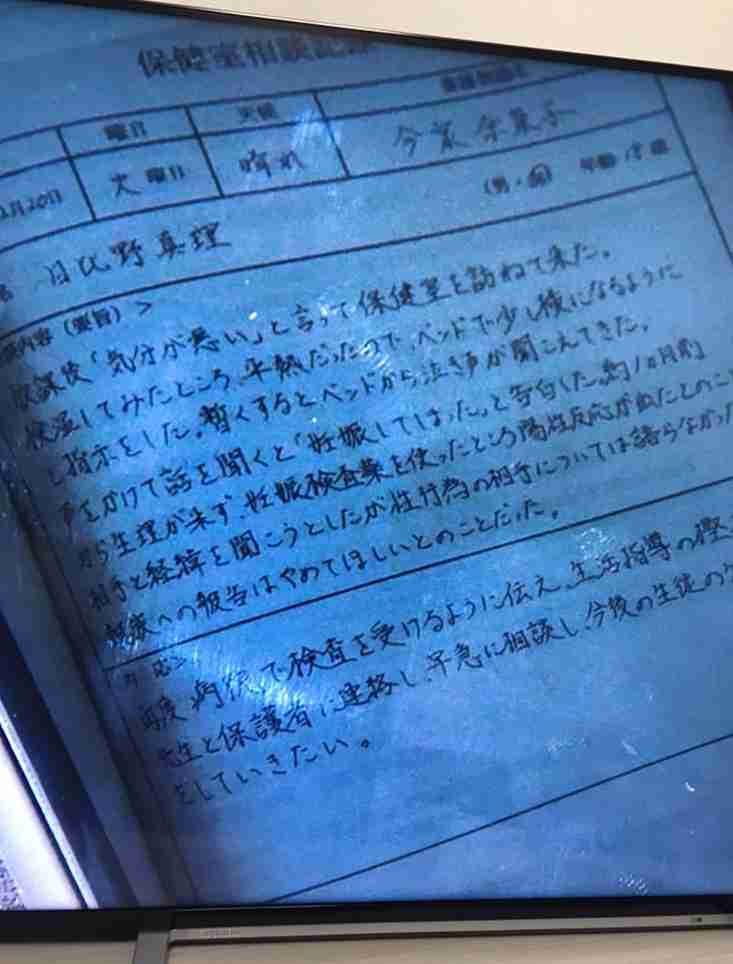 保健室相談記録
曜日 天候
2月20日 火曜日 晴れ 今 奈菓子
(男・女) 年齢 歳
名 日比野真理
内容(要旨)>
放課後「気分が悪い」と言って保健室を訪ねて来た。
検温してみたところ、平熱だったので、ベッドで少し横になるように
し指示をした。暫くするとベッドから泣き声が聞こえてきた。
声をかけて話を聞くと「妊娠してしまった」と告白した。約1ヵ月前
から生理が来ず、妊娠検査薬を使ったところ陽性反応が出たとのこと
相手と経緯を聞こうとしたが性行為の相手については語らなかった
親族への報告はやめてほしいとのことだった。
対応>
再度、病院で検査を受けるように伝え、生活指導の樫
先生と保護者に連絡し、早急に相談し、今後の生徒の
をしていきたい。